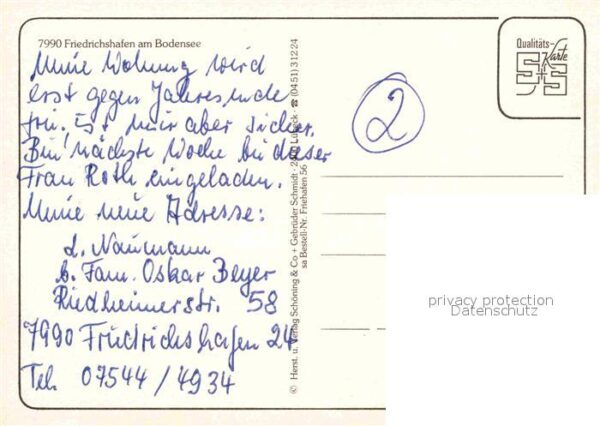 7990 Friedrichshafen am Bodensee
Meine Wohnung wird
erst gegen Jahresende
frei. Ist mir aber sicher.
Bin nächste Woche bei dieser
Frau Roth eingeladen.
Meine neue Adresse:
L. Naumann
b. Fam. Oskar Beyer
Riedheimerstr. 58
7990 Friedrichshafen 24
Tel. 07544 / 4934
© Herst. u. Verlag Schöning & Co + Gebrüder Schmidt · 2400 Lübeck ☎ (0451) 31224
sa Bestell-Nr. Friehafen 56
2
Qualitäts-
Karte
S+S
privacy protection
Datenschutz